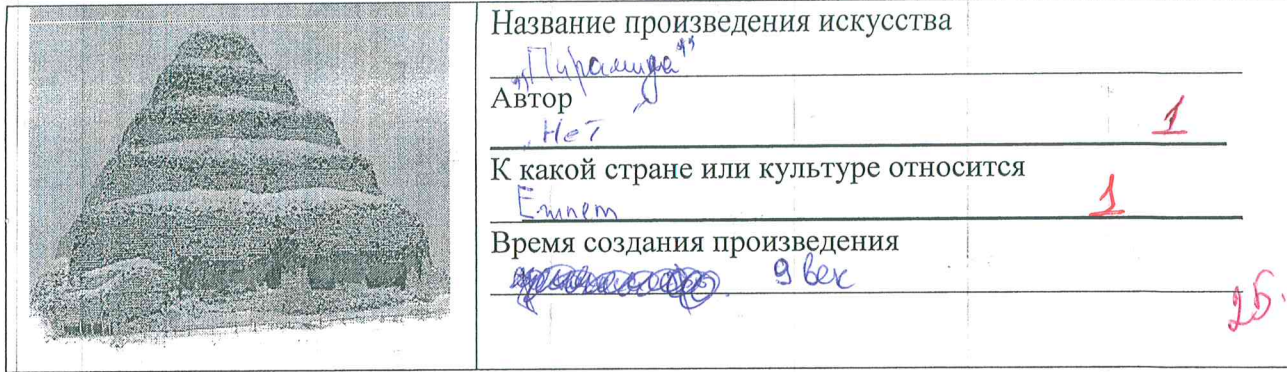 Название произведения искусства
"Пирамида"
Автор
Нет
1
К какой стране или культуре относится
Египет
1
Время создания произведения
9 век
2б.